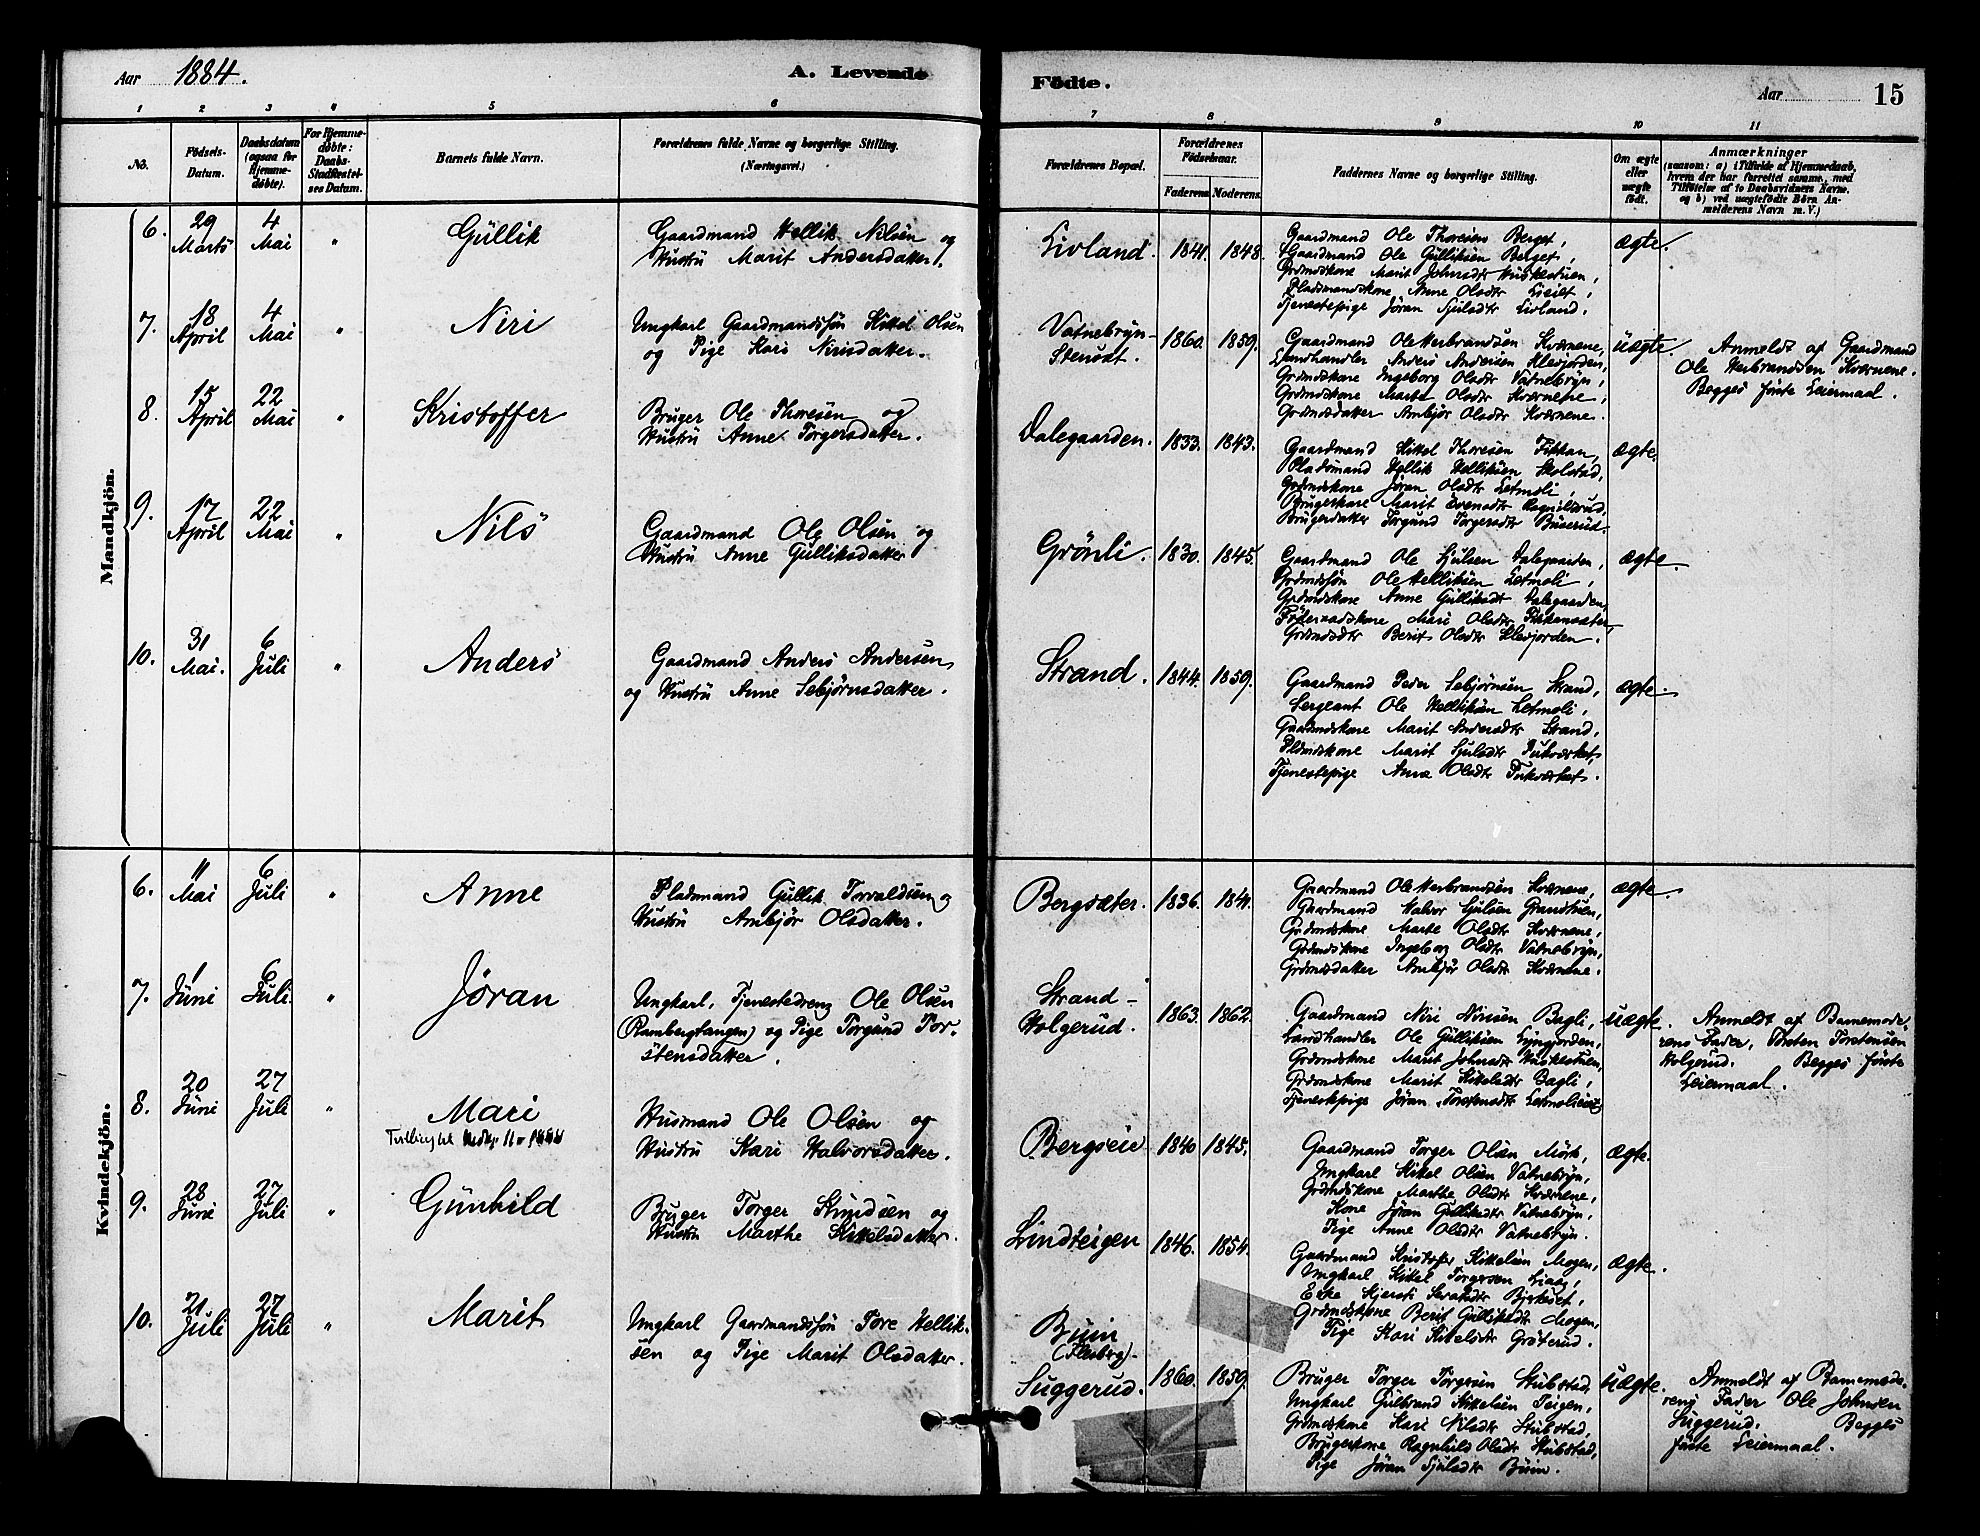 Aar 1884.
A. Levende
Födte.
Aar
15
1 2 3 4 5 6 7 8 9 10 11
No.
Födsels-
Datum.
Daabsdatum
(ogsaa for
Hjemme-
døbte).
For Hjemme-
døbte:
Daabs-
Stadfæstel-
ses Datum.
Barnets fulde Navn.
Forældrenes fulde Navne og borgerlige Stilling.
(Næringsvei.)
Forældrenes Bopæl.
Forældrenes
Födselsaar.
Faderens Moderens.
Faddernes Navne og borgerlige Stilling.
Om ægte
eller
uægte
født.
Anmærkninger
(saasom: a) i Tilfælde af Hjemmedaab,
hvem der har forrettet samme, med
Tilföielse af to Daabsvidners Navne.
og b) ved uægtefödte Börn An-
melderens Navn m. V.)
Mandkjön.
6. 29 Marts 4 Mai " Güllik
Gaardmand Hellik Nilsen og
Hustru Marit Andersdatter.
Livland. 1841. 1848.
Gaardmand Ole Thoresen Berget,
Gaardmand Ole Gülliksen Berget,
Grdmdskone Marit Johnsdtr
Pladsmandskone Anne Olsdtr
Tjenestepige Jøran Sjulsdtr Livland.
ægte.
7. 18 April 4 Mai " Niri
Ungkarl Gaardmandssøn Kittel Olsen
og Pige Kari Nirisdatter.
Vatnebryn-
1860. 1859.
Gaardmand Ole Herbrandsen Kværnene,
Landhandler Anders Andersen Klevjorden,
Grdmdskone Ingeborg Olsdtr Vatnebryn,
Grdmdskone Marte Olsdtr Kværnene,
Grdmdsdatter Ambjør Olsdtr Kværnene.
uægte.
Anmeldt af Gaardmand
Ole Herbrandsen Kværnene.
Begges første Leiermaal.
8. 15 April 22 Mai " Kristoffer
Bruger Ole Thoresen og
Hustru Anne Torgersdatter.
Dalegaarden. 1833. 1843.
Gaardmand Kittel Thoresen
Pladsmand Hellik Helliksen Skolstad,
Grdmdskone Jøran Olsdtr Letmoli,
Brugerskone Marit Evensdtr Ragnilsrud,
Brugerdatter Torgund Torgersdtr
ægte.
9. 17 April 22 Mai " Nils
Gaardmand Ole Olsen og
Hustru Anne Gülliksdatter
Grönli. 1830. 1845.
Gaardmand Ole Sjulsen Dalegaarden,
Grdmdssøn Ole Helliksen Letmoli,
Grdmdskone Anne Gülliksdtr Dalegaarden,
Föderaadskone Mari Olsdtr
Grdmdsdtr Berit Olsdtr Klevjorden.
ægte.
10. 31 Mai. 6 Juli " Anders
Gaardmand Anders Andersen
og Hustru Anne Sebjørnsdatter.
Strand. 1844. 1859.
Gaardmand Peder Sebjørnsen Strand,
Sergeant Ole Helliksen Letmoli,
Gaardmdskone Marit Andersdtr Strand,
Pldmdskone Marit Sjulsdtr Pukværket,
Tjenestepige Anne Olsdtr Pukværket.
ægte.
Kvindekjön.
6. 11 Mai 6 Juli " Anne
Pladsmand Güllik Torvaldsen og
Hustru Ambjør Olsdatter.
Bergsæter. 1836. 1841.
Gaardmand Ole Herbrandsen Kværnene,
Gaardmand Halvor Sjulsen
Grdmdskone Marte Olsdtr Kværnene,
Grdmdskone Ingeborg Olsdtr Vatnebryn,
Grdmdsdatter Ambjør Olsdtr Kværnene.
ægte.
7. 1 Juni 6 Juli " Jøran
Ungkarl, Tjenestedreng Ole Olsen
(Rambergtangen) og Pige Torgund Tor-
stensdatter.
Strand-
Holgerud. 1863. 1862.
Gaardmand Niri Nirisen Bagli,
Landhandler Ole Gülliksen Lyngjorden,
Grdmdskone Marit Johnsdtr
Grdmdskone Marit Kittelsdtr Bagli,
Tjenestepige Jøran Torstensdtr
uægte.
Anmeldt af Barnemode-
rens Fader, Torsten Torstensen
Holgerud. Begges første
Leiermaal.
8. 20 Juni 27 Juli " Mari
Husmand Ole Olsen og
Hustru Kari Halvorsdatter.
Bergseie 1840 1845.
Gaardmand Torger Olsen Mörk,
Ungkarl Kittel Olsen Vatnebryn,
Grdmdskone Marthe Olsdtr Kværnene,
Kone Jøran Gülliksdtr Vatnebryn,
Pige Anne Olsdtr Vatnebryn.
ægte.
9. 28 Juni 27 Juli " Günhild
Bruger Torger Knudsen og
Hustru Marthe Kittelsdatter.
Lindteigen 1846. 1854.
Gaardmand Kristofer Kittelsen Mogen,
Ungkarl Kittel Torgersen Liaas,
Enke Kjersti
Grdmdskone Berit Gülliksdtr Mogen,
Pige Kari Kittelsdtr Gröterud.
ægte.
10. 21 Juli 27 Juli " Marit
Ungkarl Gaardmandssøn Tore Hellik-
sen og Pige Marit Olsdatter.
Buin
(Flesberg)-
Süggerud. 1860. 1859.
Bruger Torger Torgersen Stubstad,
Ungkarl Gulbrand Kittelsen Teigen,
Grdmdskone Kari Nilsdtr Stubstad,
Brugerkone Ragnhild Olsdtr Stubstad,
Pige Jøran Sjulsdtr Buin.
uægte.
Anmeldt af Barnemode-
rens Fader Ole Johnsen
Süggerud. Begges
første Leiermaal.